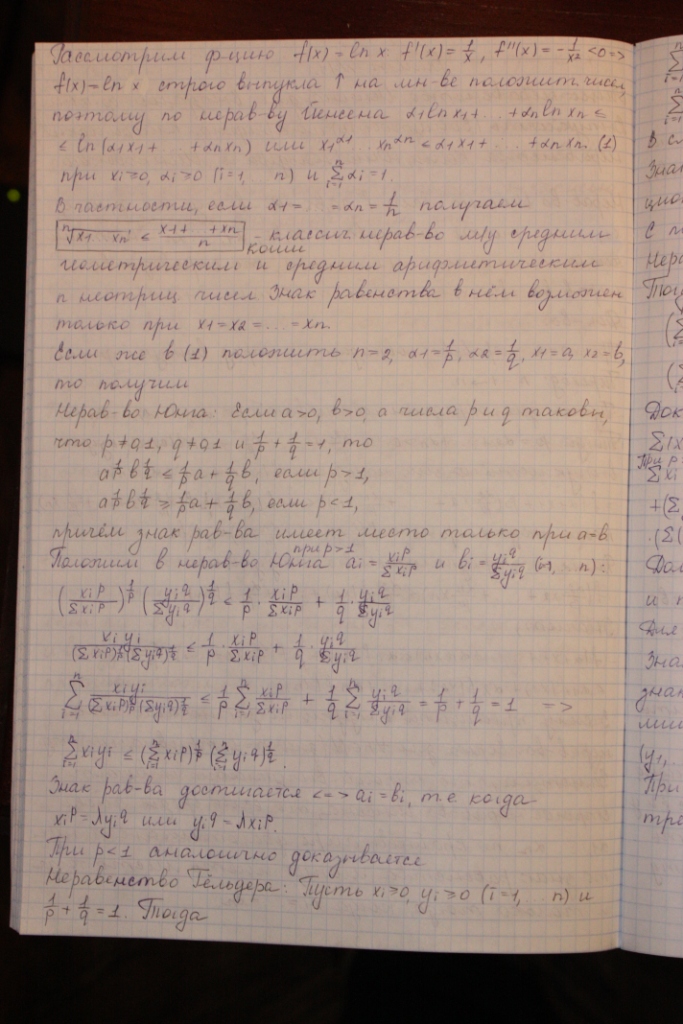 Рассмотрим ф-цию f(x)=ln x. f'(x)=1/x, f''(x)=-1/x² <0 =>
f(x)=ln x строго выпукла ↑ на мн-ве положит чисел,
поэтому по нерав-ву Йенсена α1lnx1+...+αnlnxn ≤
≤ ln(α1x1+ +αnxn) или x1^α1...xn^αn ≤ α1x1+...+αnxn. (1)
при xi≥0, αi≥0 (i=1, n) и Σ_{i=1}^{n} αi=1.
В частности, если α1= =αn=1/n получаем
ⁿ√(x1 xn) ≤ (x1+ +xn)/n - классич. нерав-во м/у средним
Коши
геометрическим и средним арифметическим
n неотриц чисел Знак равенства в нём возможен
только при x1=x2=...=xn.
Если же в (1) положить n=2, α1=1/p, α2=1/q, x1=a, x2=b,
то получим
Нерав-во Юнга: Если a>0, b>0, а числа p и q таковы,
что p≠0,1, q≠0,1 и 1/p+1/q=1, то
a^(1/p) b^(1/q) ≤ 1/p a + 1/q b, если p>1,
a^(1/p) b^(1/q) ≥ 1/p a + 1/q b, если p<1,
причём знак рав-ва имеет место только при a=b
Положим в нерав-во Юнга при p>1 ai = xi^p/Σxi^p и bi = yi^q/Σyi^q (i=1, n):
(xi^p/Σxi^p)^(1/p) (yi^q/Σyi^q)^(1/q) ≤ 1/p · xi^p/Σxi^p + 1/q · yi^q/Σyi^q
xiyi/((Σxi^p)^(1/p)(Σyi^q)^(1/q)) ≤ 1/p · xi^p/Σxi^p + 1/q · yi^q/Σyi^q
Σ_{i=1}^{n} xiyi/((Σxi^p)^(1/p)(Σyi^q)^(1/q)) ≤ 1/p Σ_{i=1}^{n} xi^p/Σxi^p + 1/q Σ_{i=1}^{n} yi^q/Σyi^q = 1/p + 1/q = 1 =>
Σ_{i=1}^{n} xiyi ≤ (Σ_{i=1}^{n} xi^p)^(1/p) (Σ_{i=1}^{n} yi^q)^(1/q).
Знак рав-ва достигается <=> ai=bi, т.е когда
xi^p=λyi^q или yi^q=λxi^p.
При p<1 аналогично доказывается
Неравенство Гёльдера: Пусть xi≥0, yi≥0 (i=1, n) и
1/p+1/q=1. Тогда